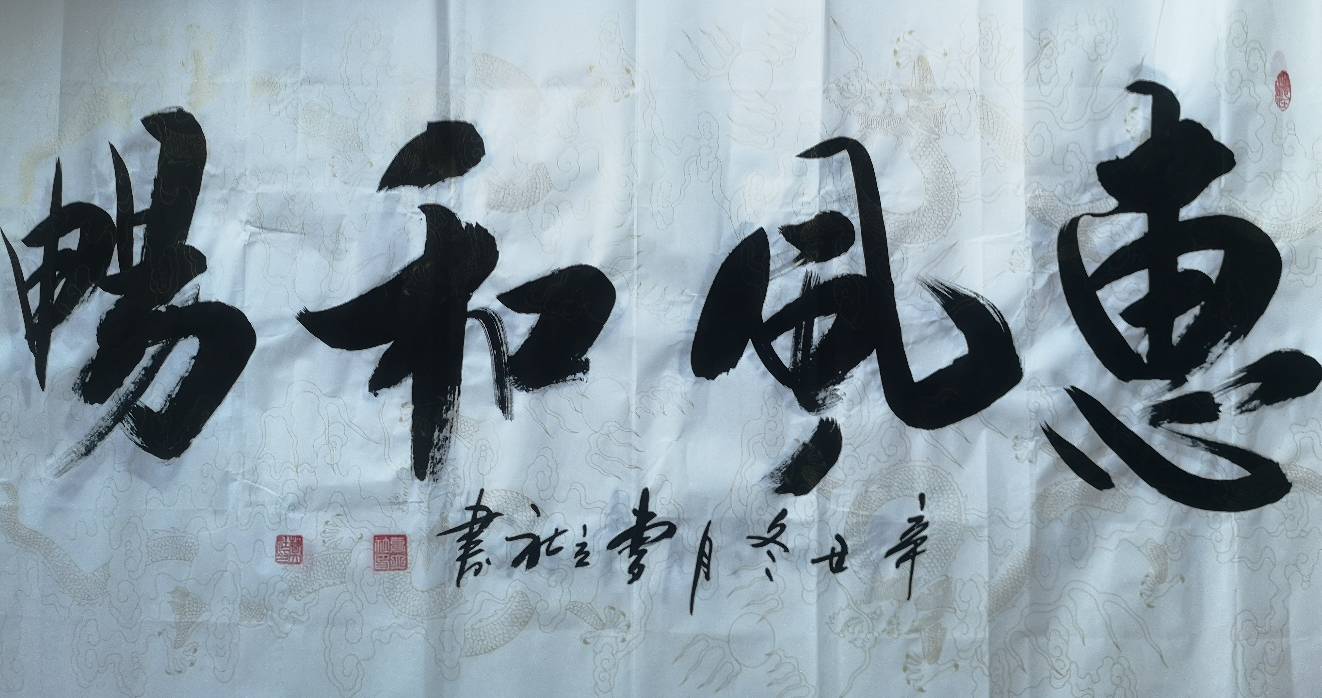 惠風和暢
辛丑冬月李立社書